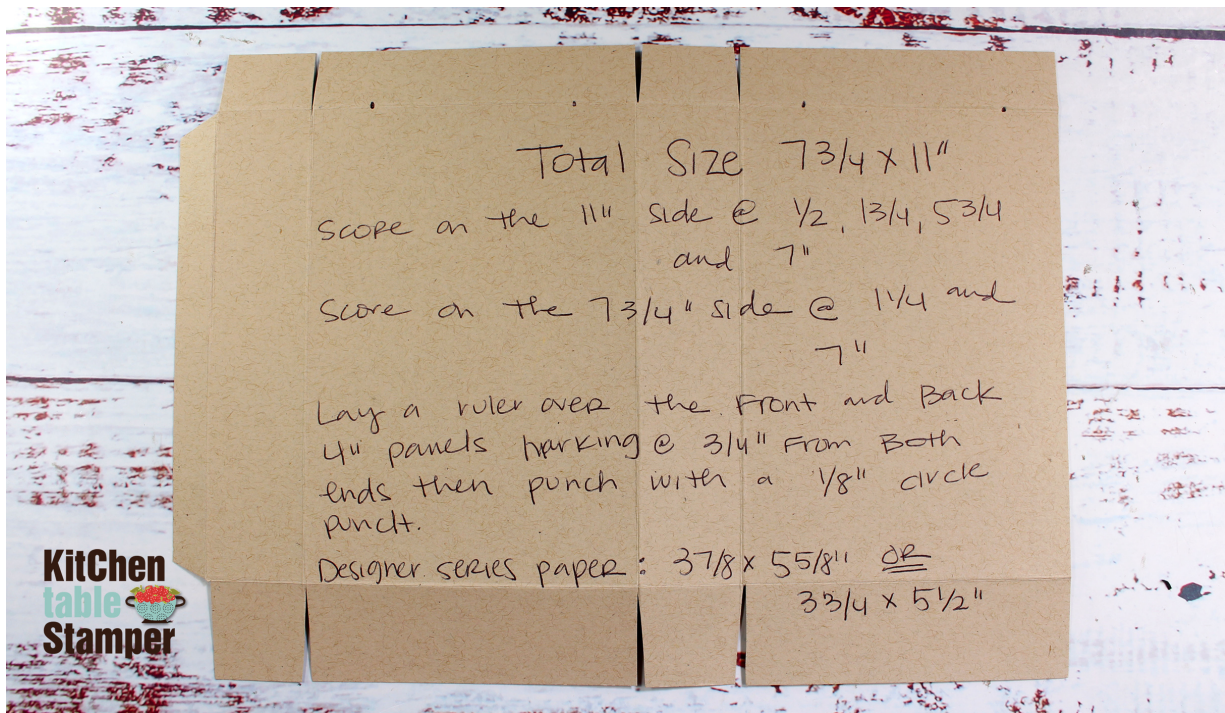 Total Size 7 3/4 x 11"
Score on the 11" side @ 1/2, 1 3/4, 5 3/4
and 7"
Score on the 7 3/4" side @ 1 1/4 and
7"
Lay a ruler over the Front and Back
4" panels marking @ 3/4" From Both
ends then punch with a 1/8" circle
punch.
Designer series paper: 3 7/8 x 5 5/8" OR
3 3/4 x 5 1/2"
KitChen
table
Stamper